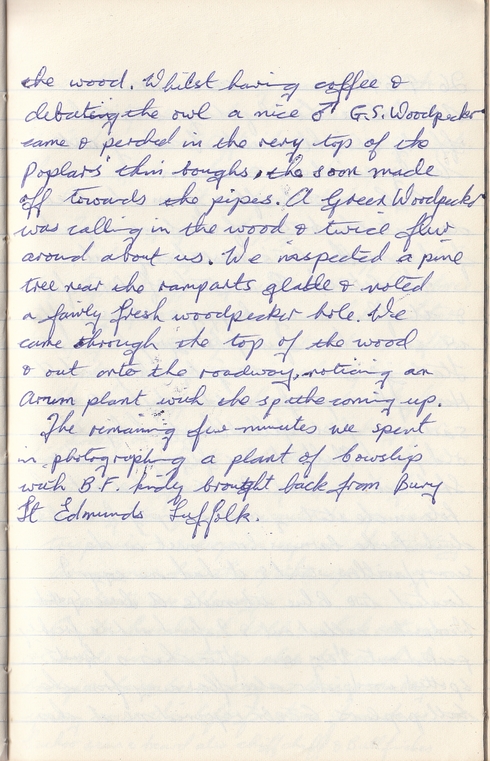 the wood. Whilst having coffee &
debating the owl a nice ♂ G.S. Woodpecker
came & perched in the very top of the
Poplars' thin boughs, he soon made
off towards the pipes. A Green Woodpecker
was calling in the wood & twice flew
around about us. We inspected a pine
tree near the ramparts glade & noted
a fairly fresh woodpecker hole. We
came through the top of the wood
& out onto the roadway, noticing an
Arum plant with the spathe coming up.
The remaining few minutes we spent
in photographing a plant of Cowslip
with B.F. kindly brought back from Bury
St Edmunds Suffolk.